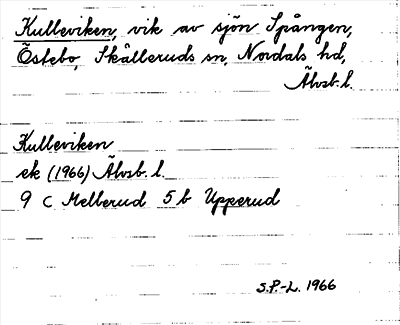 Kulleviken, vik av sjön Spången,
Östebo, Skålleruds sn, Nordals hd,
Älvsb. l.
Kulleviken
ek (1966) Älvsb. l.
9 C Mellerud 5 b Upperud
S.P.-L. 1966